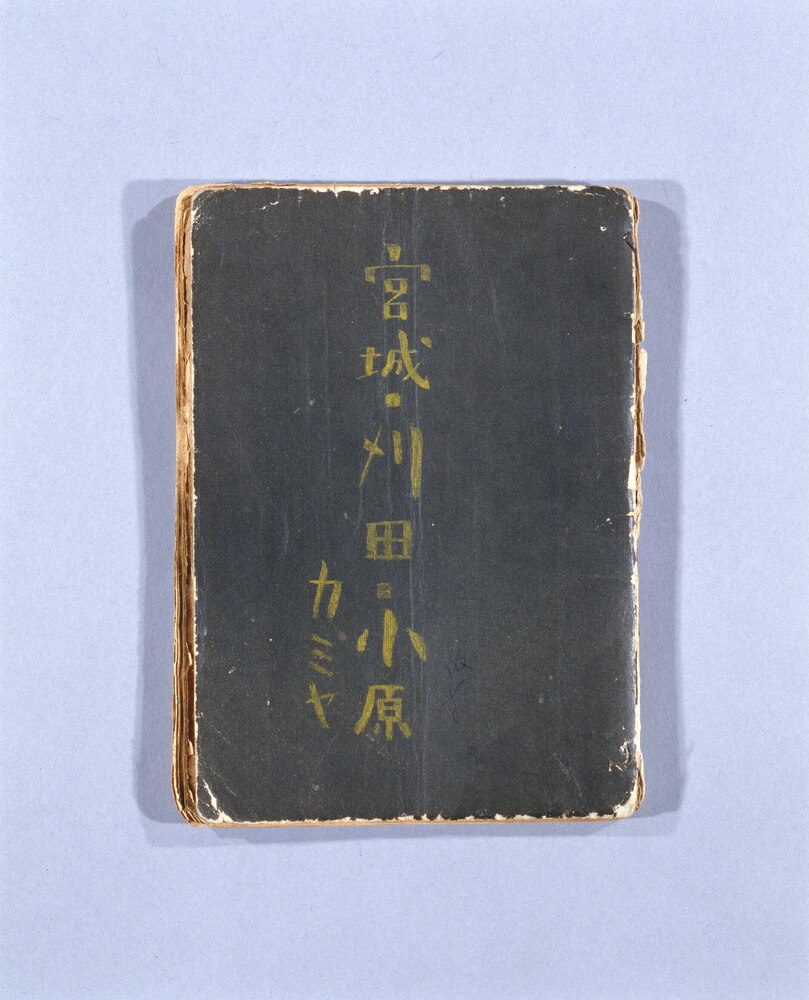 宮城・刈田・小原
カミヤ